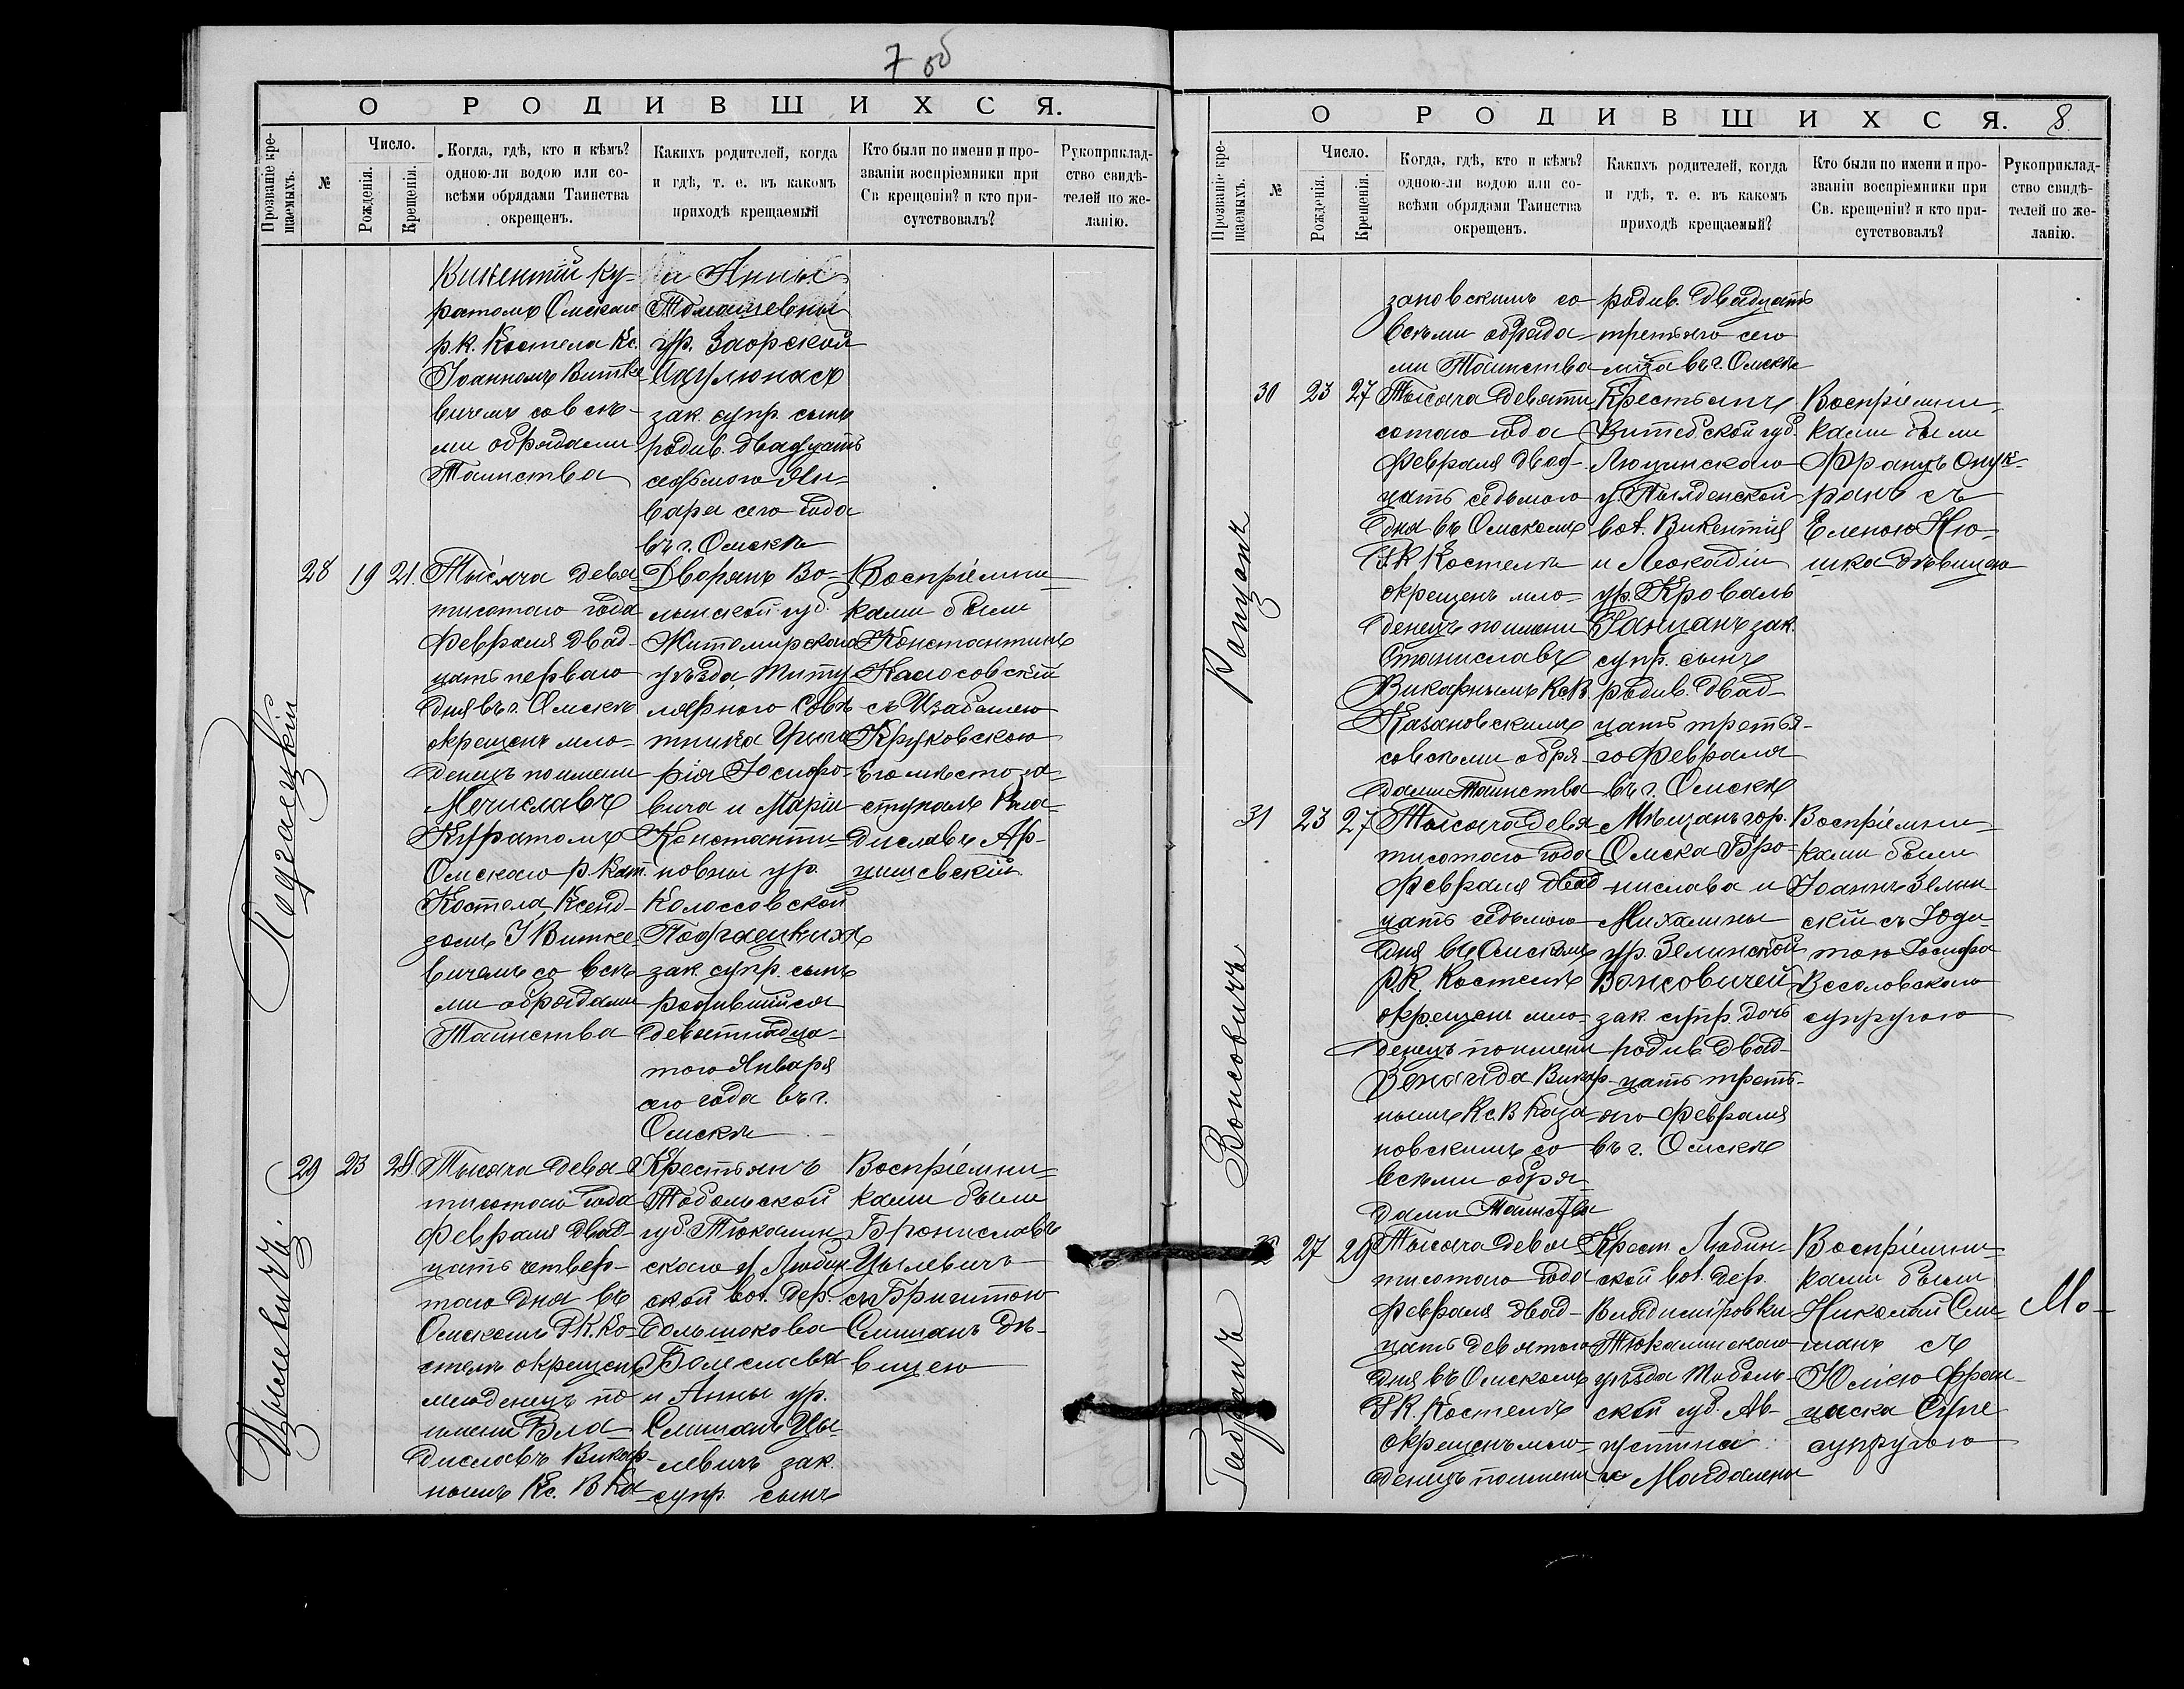 7 об
О РОДИВШИХСЯ.
Прозваніе кре-
щаемыхъ.
№
Число.
Рожденія.
Крещенія.
Когда, гдѣ, кто и кѣмъ?
одною-ли водою или со-
всѣми обрядами Таинства
окрещенъ.
Какихъ родителей, когда
и гдѣ, т. е. въ какомъ
приходѣ крещаемый
Кто были по имени и про-
званіи воспріемники при
Св крещеніи? и кто при-
сутствовалъ?
Рукоприклад-
ство свидѣ-
телей по же-
ланію.
Викентій Ку-
ратомъ Омскаго
р.к. Костела Кс.
Іоанномъ Витке-
вичемъ со всѣ-
ми обрядами
Таинства
и Анны
Томашевны
ур. Заорской
зак. супр. сынъ
родив. двадцать
седьмого Ян-
варя сего года
въ г. Омскѣ
Подгаецкій
28 19 21.
Тысяча девя-
тисотаго года
Февраля двад-
цать перваго
дня въ г. Омскѣ
окрещенъ мла-
денецъ по имени
Мечиславъ
Куратомъ
Омскаго р. Кат.
Костела, Ксенд-
зомъ І Витке-
вичемъ со всѣ-
ми обрядами
Таинства
Дворянъ Во-
лынской губ.
Житомирскаго
уѣзда, Титу
лярнаго Совѣ
тника Григо
рія Іосифо-
вича и Маріи
Константи-
новны ур.
Колоссовской
Подгаецкихъ
зак. супр. сынъ
родившійся
девятнадца-
того Января
сего года въ г.
Омскѣ
Воспріемни-
ками были
Константинъ
Колосовскій
съ Изабелею
Круковскою
Его мѣсто за-
ступалъ Вла-
диславъ Ар-
цишевскій
Цылевичъ.
29 23 24
Тысяча девя-
тисотаго года
Февраля двад-
цать четвер-
таго дня въ
Омскомъ Р.К. Ко-
стелѣ окрещенъ
младенецъ по
имени Вла-
диславъ Викар-
нымъ Кс. В Ка-
Крестьянъ
Тобольской
губ. Тюкалин
скаго у. Любин
ской вол. дер.
Большакова
Болеслава
и Анны ур.
Слишанъ Цы-
левичъ зак.
супр. сынъ
Воспріемни-
ками были
Брониславъ
Цылевичъ
съ Бригитою
Слишанъ дѣ-
вицею
О РОДИВШИХСЯ.
8
Прозваніе кре-
щаемыхъ.
№
Число.
Рожденія.
Крещенія.
Когда, гдѣ, кто и кѣмъ?
одною-ли водою или со-
всѣми обрядами Таинства
окрещенъ.
Какихъ родителей, когда
и гдѣ, т. е. въ какомъ
приходѣ крещаемый?
Кто были по имени и про-
званіи воспріемники при
Св. крещеніи? и кто при-
сутствовалъ?
Рукоприклад-
ство свидѣ-
телей по же-
ланію.
зановскимъ со
всѣми обряда-
ми Таинства
родив. двадцать
третьяго сего
мѣца въ г. Омскѣ
Ранцанъ
30 23 27
Тысяча девяти
сотаго года
Февраля двад-
цать седьмого
дня въ Омскомъ
Р.К Костелѣ
окрещенъ мла-
денецъ по имени
Станиславъ
Викарнымъ Кс В
Казановскимъ
со всѣми обря-
дами Таинства
Крестьянъ
Витебской губ.
Люцинскаго
у. Пылденской
вол. Викентія
и Леокадіи
ур. Кроваль
Ранцанъ зак.
супр. сынъ
родив. двад-
цать третья-
го Февраля
въ г. Омскѣ
Воспріемни-
ками были
Францъ Опук-
ранъ съ
Еленою Ню-
шка дѣвицею
Вонсовичъ
31 23 27
Тысяча девя
тисотаго года
Февраля двад
цать седьмого
дня въ Омскомъ
р.К. Костелѣ
окрещенъ мла-
денецъ по имени
Зенаида Викар-
нымъ Кс. В Каза-
новскимъ со
всѣми обря-
дами Таинства
Мѣщанъ гор.
Омска Бро-
нислава и
Михалины
ур. Зелинской
Вонсовичей
зак. супр. дочь
родив. двад-
цать треть-
яго Февраля
въ г. Омскѣ
Воспріемни-
ками были
Іоаннъ Зелин-
скій съ Юди-
тою Іосифа
Весоловскаго
супругою
32 27 29
Тысяча девя-
тисотаго года
Февраля двад-
цать девятаго
дня въ Омскомъ
Р.К. Костелѣ
окрещенъ мла-
денецъ по имени
Крест Любин-
ской вол. дер.
Владиміровки
Тюкалинскаго
уѣзда Тоболь-
ской губ. Ав-
густина
и Магдалены
Воспріемни-
ками были
Николай Сли-
шанъ съ
Юліею Фран-
циска Супе
супругою
Мо-